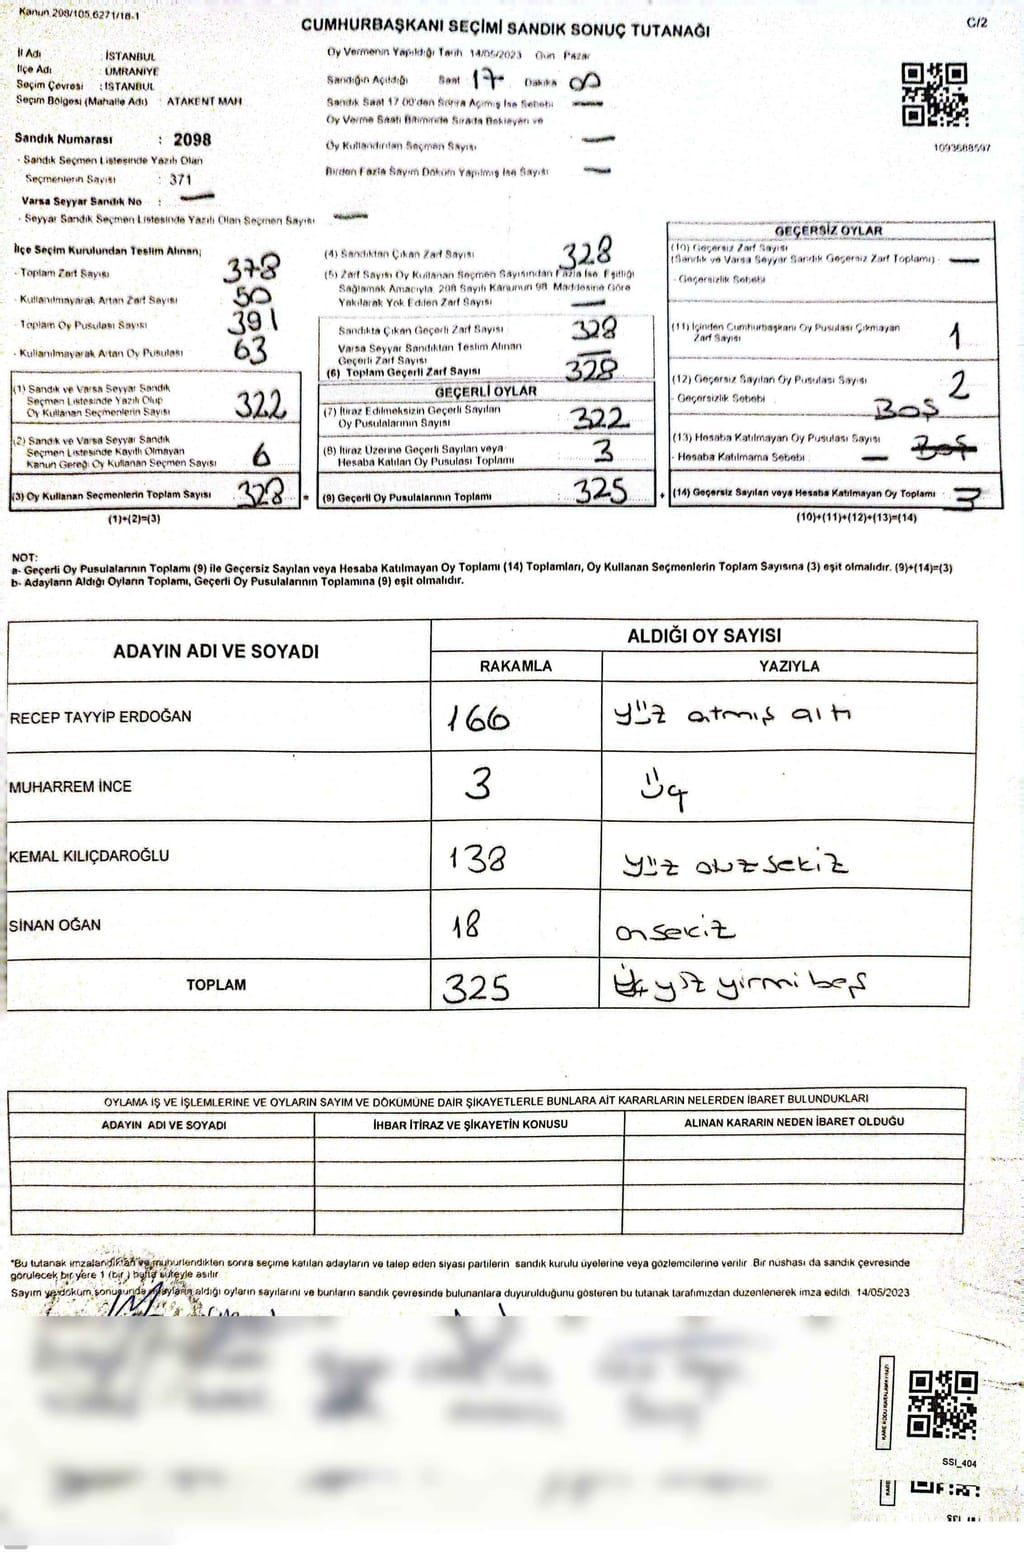 Kanun 298/105,6271/18-1
CUMHURBAŞKANI SEÇİMİ SANDIK SONUÇ TUTANAĞI
C/2
İl Adı : İSTANBUL
İlçe Adı : ÜMRANİYE
Seçim Çevresi : İSTANBUL
Seçim Bölgesi (Mahalle Adı) : ATAKENT MAH
Sandık Numarası : 2098
- Sandık Seçmen Listesinde Yazılı Olan
Seçmenlerin Sayısı : 371
Varsa Seyyar Sandık No : —
- Seyyar Sandık Seçmen Listesinde Yazılı Olan Seçmen Sayısı : —
Oy Vermenin Yapıldığı Tarih 14/05/2023 Gün Pazar
Sandığın Açıldığı Saat 17 Dakika 00
Sandık Saat 17 00'den Sonra Açılmış İse Sebebi —
Oy Verme Saati Bitiminde Sırada Bekleyen ve
Oy Kullandırılan Seçmen Sayısı —
Birden Fazla Sayım Döküm Yapılmış İse Sayısı —
1093688597
İlçe Seçim Kurulundan Teslim Alınan;
- Toplam Zarf Sayısı 378
- Kullanılmayarak Artan Zarf Sayısı 50
- Toplam Oy Pusulası Sayısı 391
- Kullanılmayarak Artan Oy Pusulası 63
(1) Sandık ve Varsa Seyyar Sandık
Seçmen Listesinde Yazılı Olup
Oy Kullanan Seçmenlerin Sayısı 322
(2) Sandık ve Varsa Seyyar Sandık
Seçmen Listesinde Kayıtlı Olmayan
Kanun Gereği Oy Kullanan Seçmen Sayısı 6
(3) Oy Kullanan Seçmenlerin Toplam Sayısı 328 =
(1)+(2)=(3)
(4) Sandıktan Çıkan Zarf Sayısı 328
(5) Zarf Sayısı Oy Kullanan Seçmen Sayısından Fazla İse Eşitliği
Sağlamak Amacıyla, 298 Sayılı Kanunun 98. Maddesine Göre
Yakılarak Yok Edilen Zarf Sayısı —
Sandıkta Çıkan Geçerli Zarf Sayısı 328
Varsa Seyyar Sandıktan Teslim Alınan
Geçerli Zarf Sayısı —
(6) Toplam Geçerli Zarf Sayısı 328
GEÇERLİ OYLAR
(7) İtiraz Edilmeksizin Geçerli Sayılan
Oy Pusulalarının Sayısı 322
(8) İtiraz Üzerine Geçerli Sayılan veya
Hesaba Katılan Oy Pusulası Toplamı 3
(9) Geçerli Oy Pusulalarının Toplamı 325 +
GEÇERSİZ OYLAR
(10) Geçersiz Zarf Sayısı
(Sandık ve Varsa Seyyar Sandık Geçersiz Zarf Toplamı) —
- Geçersizlik Sebebi
(11) İçinden Cumhurbaşkanı Oy Pusulası Çıkmayan
Zarf Sayısı 1
(12) Geçersiz Sayılan Oy Pusulası Sayısı 2
- Geçersizlik Sebebi : BOŞ
(13) Hesaba Katılmayan Oy Pusulası Sayısı BOŞ
- Hesaba Katılmama Sebebi : —
(14) Geçersiz Sayılan veya Hesaba Katılmayan Oy Toplamı 3
(10)+(11)+(12)+(13)=(14)
NOT:
a- Geçerli Oy Pusulalarının Toplamı (9) ile Geçersiz Sayılan veya Hesaba Katılmayan Oy Toplamı (14) Toplamları, Oy Kullanan Seçmenlerin Toplam Sayısına (3) eşit olmalıdır. (9)+(14)=(3)
b- Adayların Aldığı Oyların Toplamı, Geçerli Oy Pusulalarının Toplamına (9) eşit olmalıdır.
ADAYIN ADI VE SOYADI
ALDIĞI OY SAYISI
RAKAMLA YAZIYLA
RECEP TAYYİP ERDOĞAN 166 yüz atmış altı
MUHARREM İNCE 3 üç
KEMAL KILIÇDAROĞLU 138 yüz otuzsekiz
SİNAN OĞAN 18 onsekiz
TOPLAM 325 üç yüz yirmi beş
OYLAMA İŞ VE İŞLEMLERİNE VE OYLARIN SAYIM VE DÖKÜMÜNE DAİR ŞİKAYETLERLE BUNLARA AİT KARARLARIN NELERDEN İBARET BULUNDUKLARI
ADAYIN ADI VE SOYADI İHBAR İTİRAZ VE ŞİKAYETİN KONUSU ALINAN KARARIN NEDEN İBARET OLDUĞU
*Bu tutanak imzalandıktan ve mühürlendikten sonra seçime katılan adayların ve talep eden siyasi partilerin sandık kurulu üyelerine veya gözlemcilerine verilir. Bir nüshası da sandık çevresinde
görülecek bir yere 1 (bir) hafta süreyle asılır.
Sayım ve döküm sonucunda adayların aldığı oyların sayılarını ve bunların sandık çevresinde bulunanlara duyurulduğunu gösteren bu tutanak tarafımızdan düzenlenerek imza edildi. 14/05/2023
SSI_404